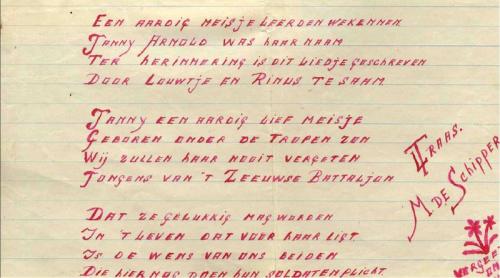 EEN AARDIG MEISJE LEERDEN WE KENNEN
JANNY ARNOLD WAS HAAR NAAM
TER HERINNERING IS DIT LIEDJE GESCHREVEN
DOOR LOUWTJE EN RINUS TE SAAM.
JANNY EEN AARDIG LIEF MEISJE
GEBOREN ONDER DE TROPEN ZON
WIJ ZULLEN HAAR NOOIT VERGETEN
JONGENS VAN 'T ZEEUWSE BATTALJON
DAT ZE GELUKKIG MAG WORDEN
IN 'T LEVEN DAT VOOR HAAR LIGT
IS DE WENS VAN ONS BEIDEN
DIE HIER NOG DOEN HUN SOLDATENPLICHT.
L FRAAS.
M DE SCHIPPER